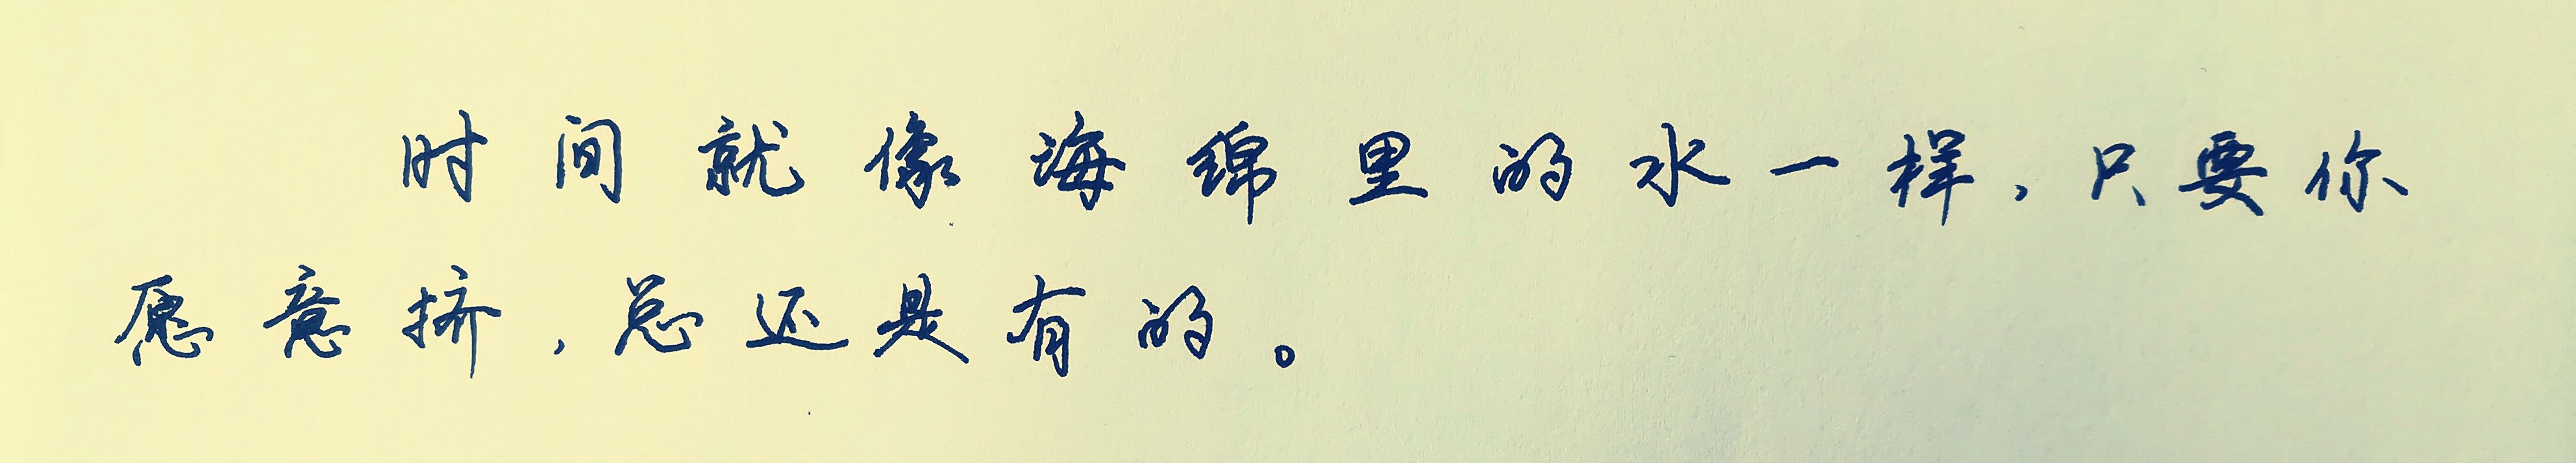 时间就像海绵里的水一样，只要你
愿意挤，总还是有的。